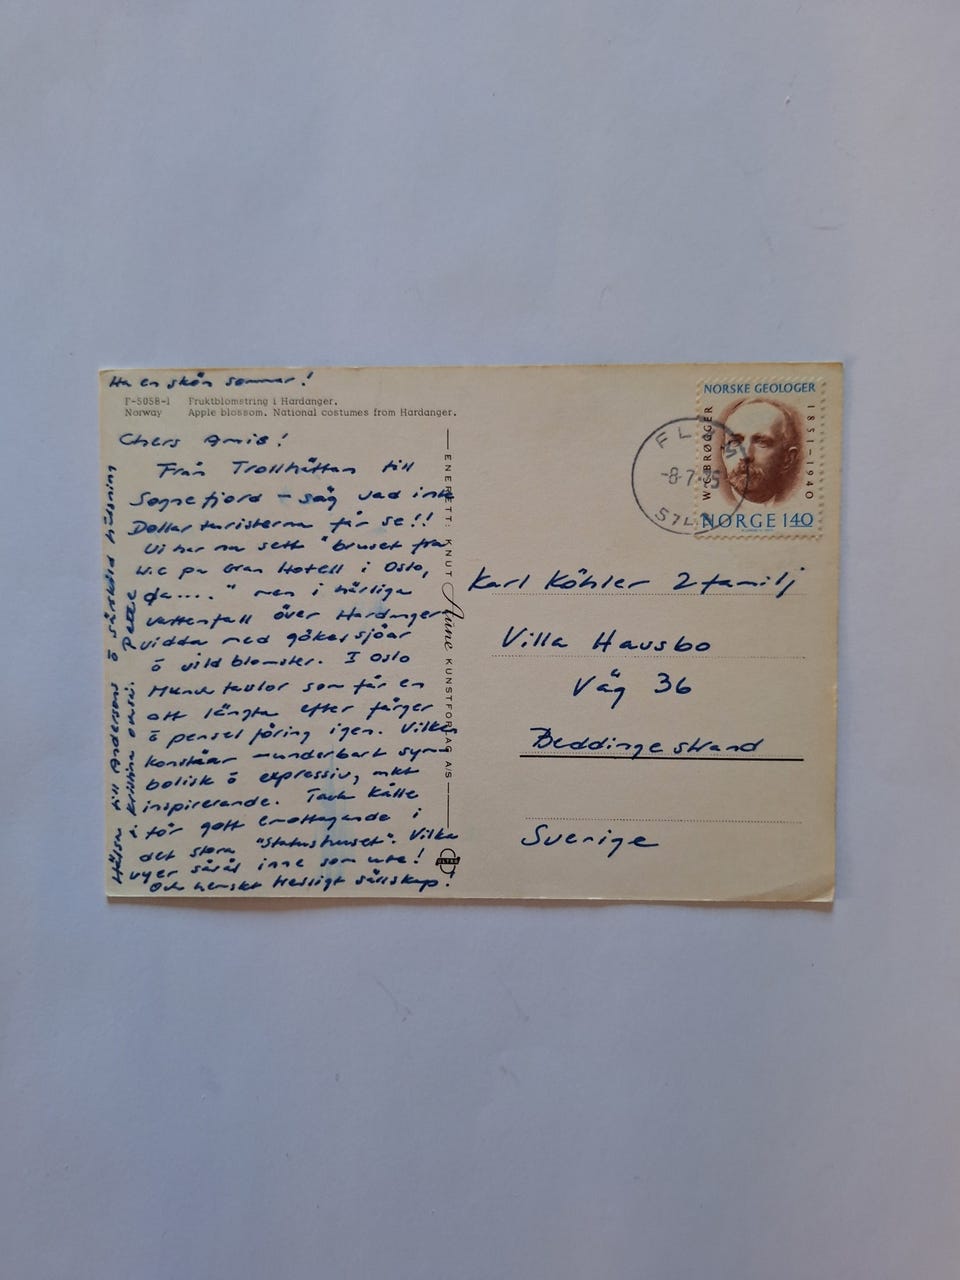 Ha en skön sommar!
F-5058-1 Fruktblomstring i Hardanger.
Norway Apple blossom. National costumes from Hardanger.
Chers Amis!
Från Trollhättan till
Sognefjord – säg vad inte
Dollarturisterna får se!!
Vi har nu sett "bruset från
W.C på Gran Hotell i Oslo,
da...." men i härliga
vattenfall över Hardanger
vidda med gökar sjöar
ö vildblomster. I Oslo
Munch tavlor som får en
att längta efter färger
ö penselföring igen. Vilken
konstnär – underbart sym-
bolisk ö expressiv, mkt
inspirerande. Tack Kålle
för gott emottagande i
det stora "Statushuset". Vilka
vyer såväl inne som ute!
Och hemskt trevligt sällskap!
Hälsa till Anderssons ö särskild hälsning
i. Kristina
Petle
ENERETT: KNUT Aune KUNSTFORLAG A/S
ULTRA
NORSKE GEOLOGER
W.C. BRØGGER
1851–1940
NORGE 140
-8-7-75
Karl Köhler 2 familj
Villa Hausbo
Väg 36
Beddingestrand
Sverige